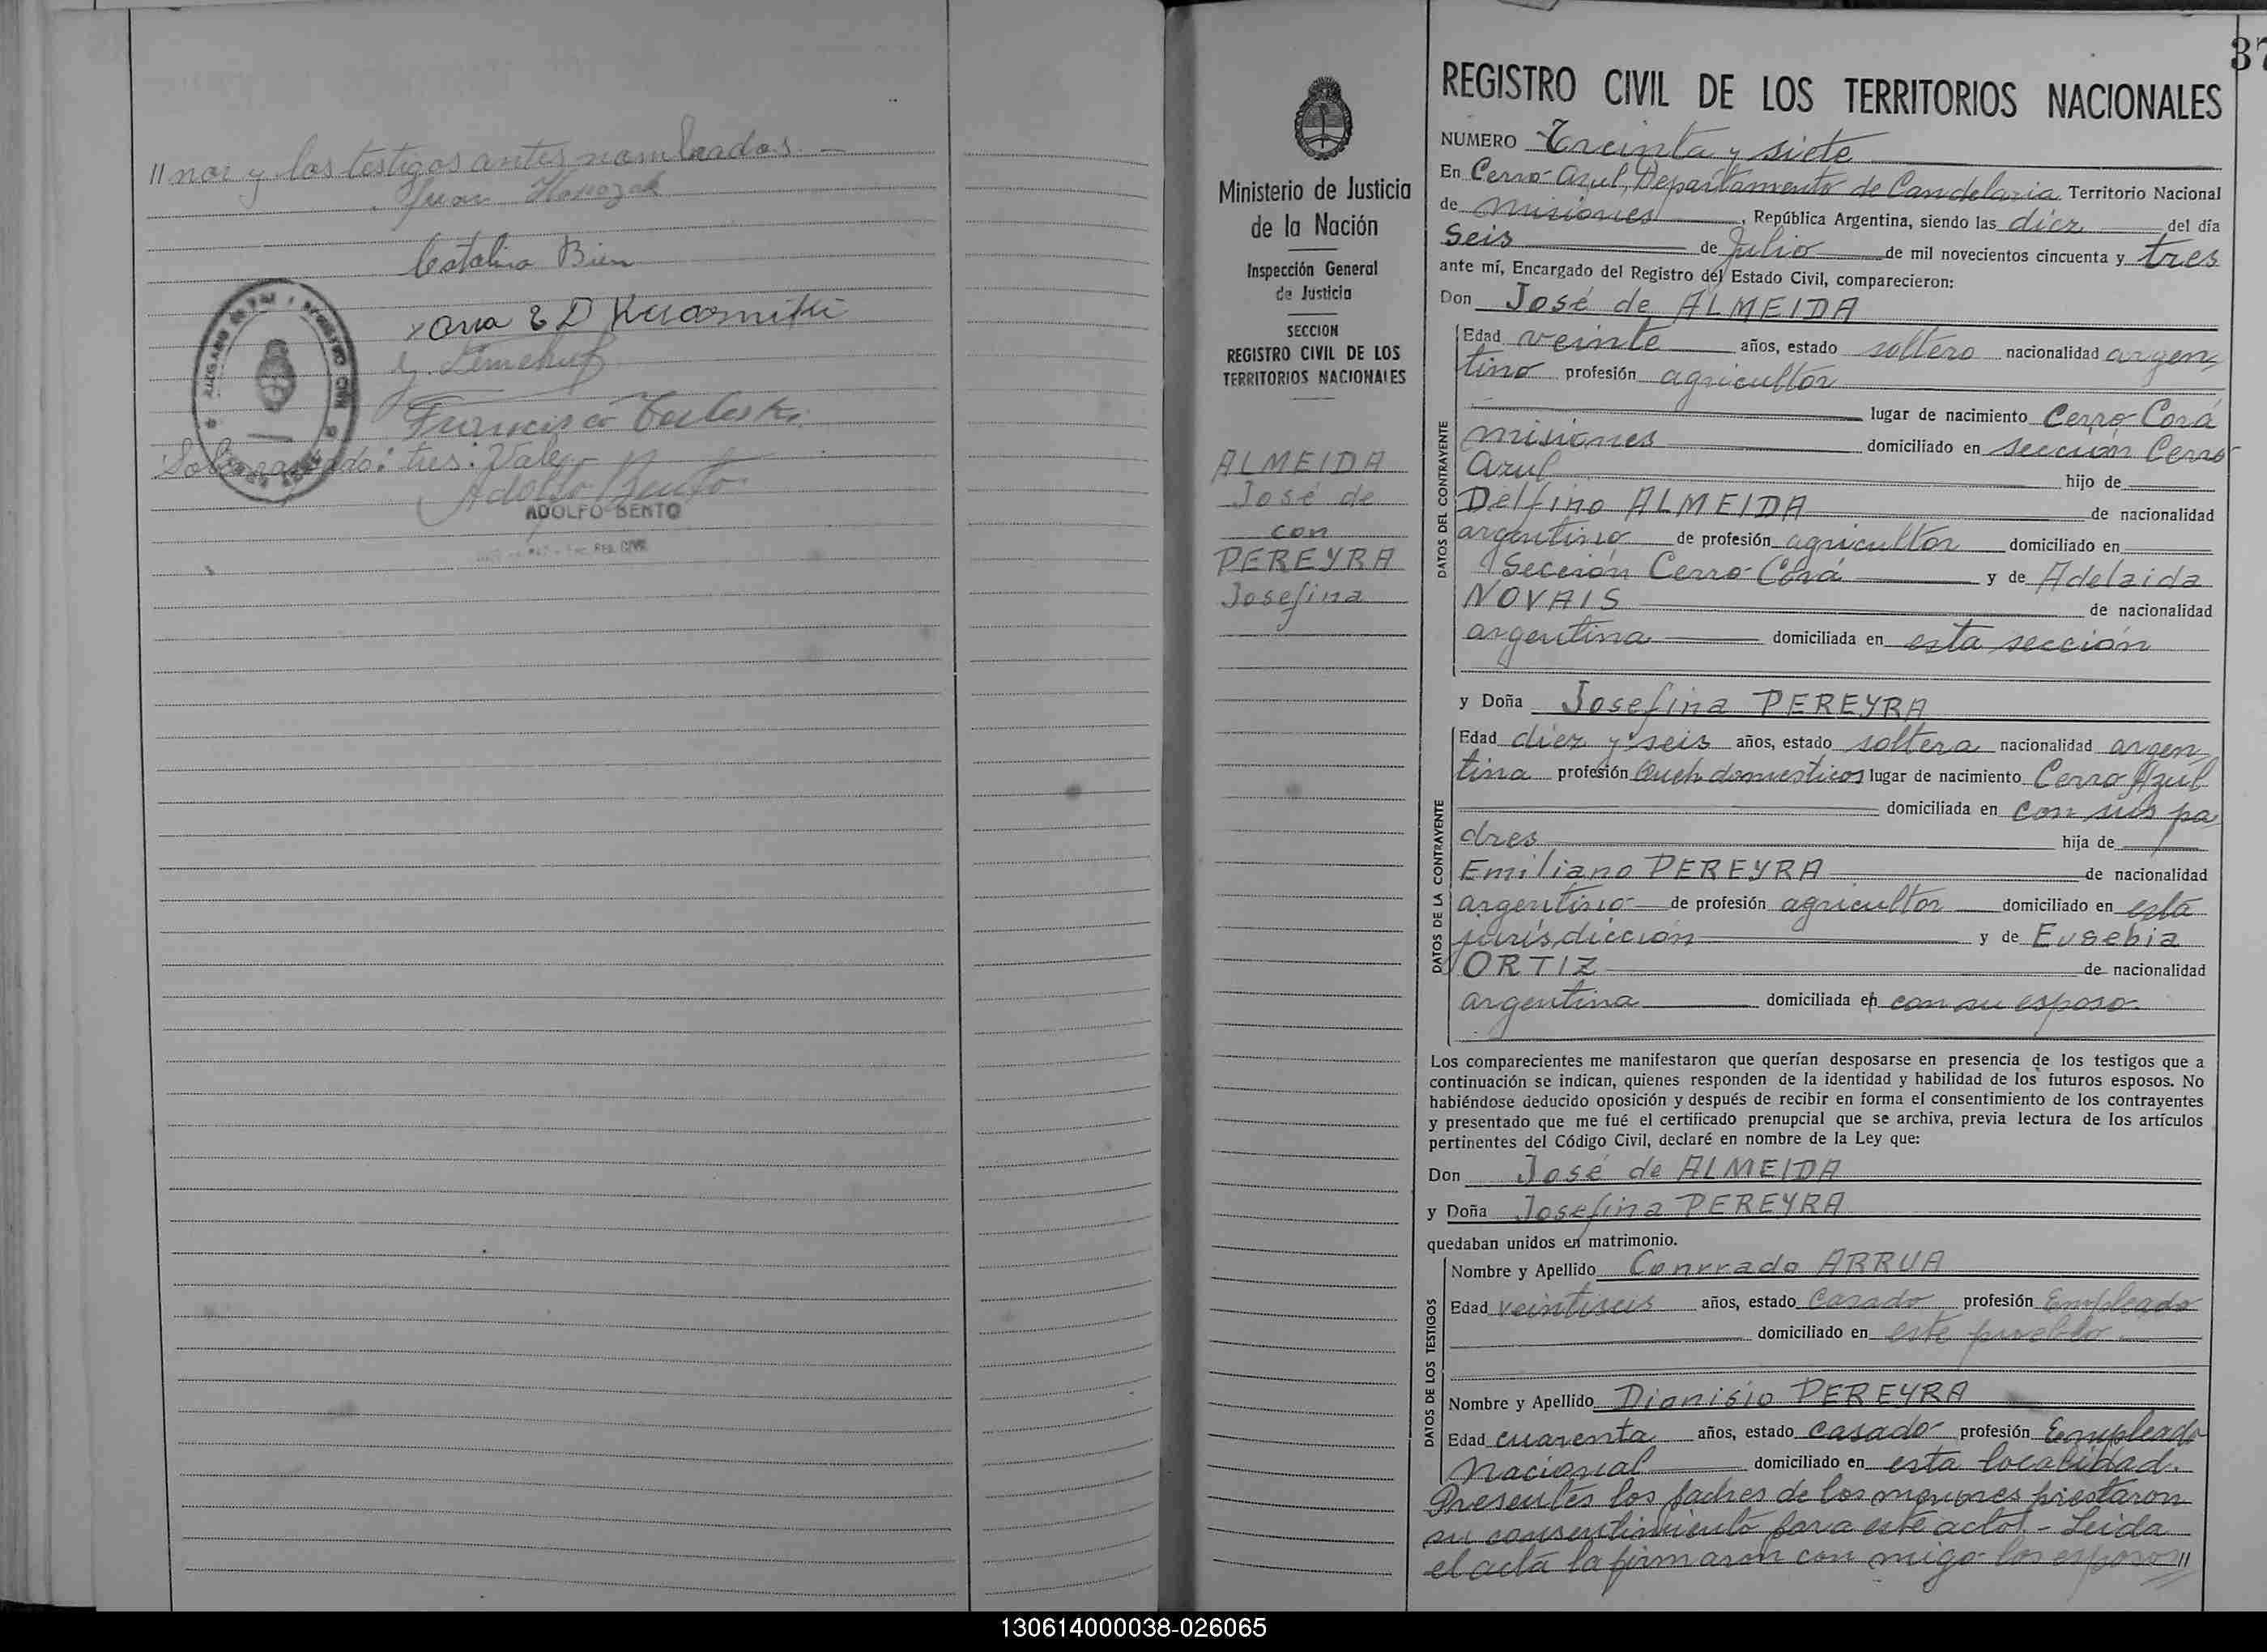 " nor y los testigos antes nombrados. —
Juan
Catalina Bien
Francisco
Sobrerraspado: tres. Vale
Adolfo Bento
ADOLFO BENTO
37
REGISTRO CIVIL DE LOS TERRITORIOS NACIONALES
Ministerio de Justicia
de la Nación
Inspección General
de Justicia
SECCION
REGISTRO CIVIL DE LOS
TERRITORIOS NACIONALES
ALMEIDA
José de
con
PEREYRA
Josefina
NUMERO Treinta y siete
En Cerro-Azul, Departamento de Candelaria Territorio Nacional
de Misiones, República Argentina, siendo las diez del día
Seis de Julio de mil novecientos cincuenta y tres
ante mí, Encargado del Registro del Estado Civil, comparecieron:
Don José de ALMEIDA
DATOS DEL CONTRAYENTE
Edad veinte años, estado soltero nacionalidad argen-
tino profesión agricultor
lugar de nacimiento Cerro-Corá
Misiones domiciliado en sección Cerro
Azul hijo de
Delfino ALMEIDA de nacionalidad
argentino de profesión agricultor domiciliado en
Sección Cerro-Corá y de Adelaida
NOVAIS de nacionalidad
argentina domiciliada en esta sección
y Doña Josefina PEREYRA
DATOS DE LA CONTRAYENTE
Edad diez y seis años, estado soltera nacionalidad argen-
tina profesión Queh domesticos lugar de nacimiento Cerro Azul
domiciliada en con sus pa-
dres hija de
Emiliano PEREYRA de nacionalidad
argentino de profesión agricultor domiciliado en esta
jurisdicción y de Eusebia
ORTIZ de nacionalidad
argentina domiciliada en con su esposo.
Los comparecientes me manifestaron que querían desposarse en presencia de los testigos que a
continuación se indican, quienes responden de la identidad y habilidad de los futuros esposos. No
habiéndose deducido oposición y después de recibir en forma el consentimiento de los contrayentes
y presentado que me fué el certificado prenupcial que se archiva, previa lectura de los artículos
pertinentes del Código Civil, declaré en nombre de la Ley que:
Don José de ALMEIDA
y Doña Josefina PEREYRA
quedaban unidos en matrimonio.
DATOS DE LOS TESTIGOS
Nombre y Apellido Conrrado ARRUA
Edad veintiseis años, estado Casado profesión Empleado
domiciliado en este pueblo.
Nombre y Apellido Dionisio PEREYRA
Edad cuarenta años, estado casado profesión Empleado
Nacional domiciliado en esta localidad.
Presentes los padres de los menores prestaron
su consentimiento para este acto. - Leida
el acta la firmaron con migo los esposos "
130614000038-026065